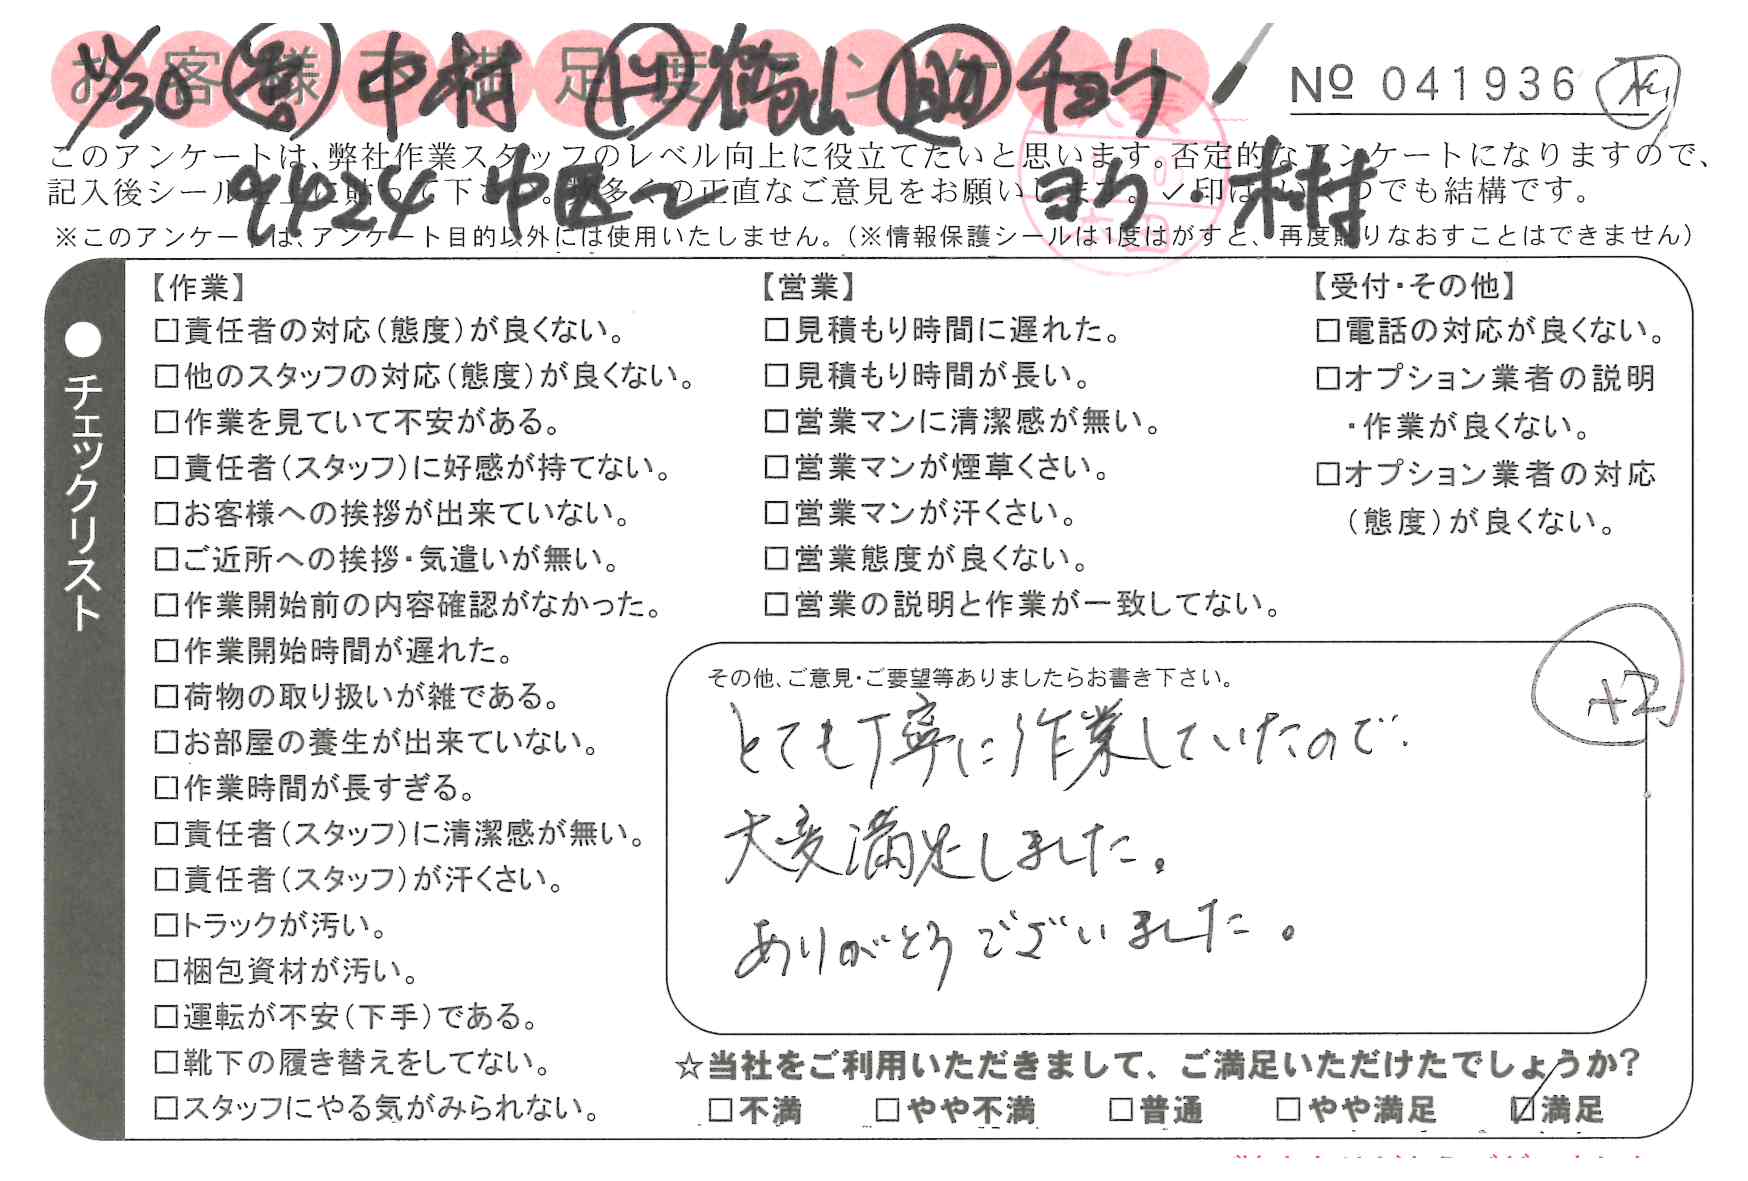 お客様満足度アンケート
11/30 営 中村 ド 横山 助 チョウ
№ 041936
このアンケートは、弊社作業スタッフのレベル向上に役立てたいと思います。否定的なアンケートになりますので、
9424 中区〜 ヨウ・木村
記入後シールを上に貼って下さい。数多くの正直なご意見をお願いします。✓印はいくつでも結構です。
※このアンケートは、アンケート目的以外には使用いたしません。(※情報保護シールは1度はがすと、再度貼りなおすことはできません)
●チェックリスト
【作業】
□責任者の対応(態度)が良くない。
□他のスタッフの対応(態度)が良くない。
□作業を見ていて不安がある。
□責任者(スタッフ)に好感が持てない。
□お客様への挨拶が出来ていない。
□ご近所への挨拶・気遣いが無い。
□作業開始前の内容確認がなかった。
□作業開始時間が遅れた。
□荷物の取り扱いが雑である。
□お部屋の養生が出来ていない。
□作業時間が長すぎる。
□責任者(スタッフ)に清潔感が無い。
□責任者(スタッフ)が汗くさい。
□トラックが汚い。
□梱包資材が汚い。
□運転が不安(下手)である。
□靴下の履き替えをしてない。
□スタッフにやる気がみられない。
【営業】
□見積もり時間に遅れた。
□見積もり時間が長い。
□営業マンに清潔感が無い。
□営業マンが煙草くさい。
□営業マンが汗くさい。
□営業態度が良くない。
□営業の説明と作業が一致してない。
【受付・その他】
□電話の対応が良くない。
□オプション業者の説明
・作業が良くない。
□オプション業者の対応
(態度)が良くない。
その他、ご意見・ご要望等ありましたらお書き下さい。
+2
とても丁寧に作業していたので、
大変満足しました。
ありがとうございました。
☆当社をご利用いただきまして、ご満足いただけたでしょうか?
□不満 □やや不満 □普通 □やや満足 ☑満足